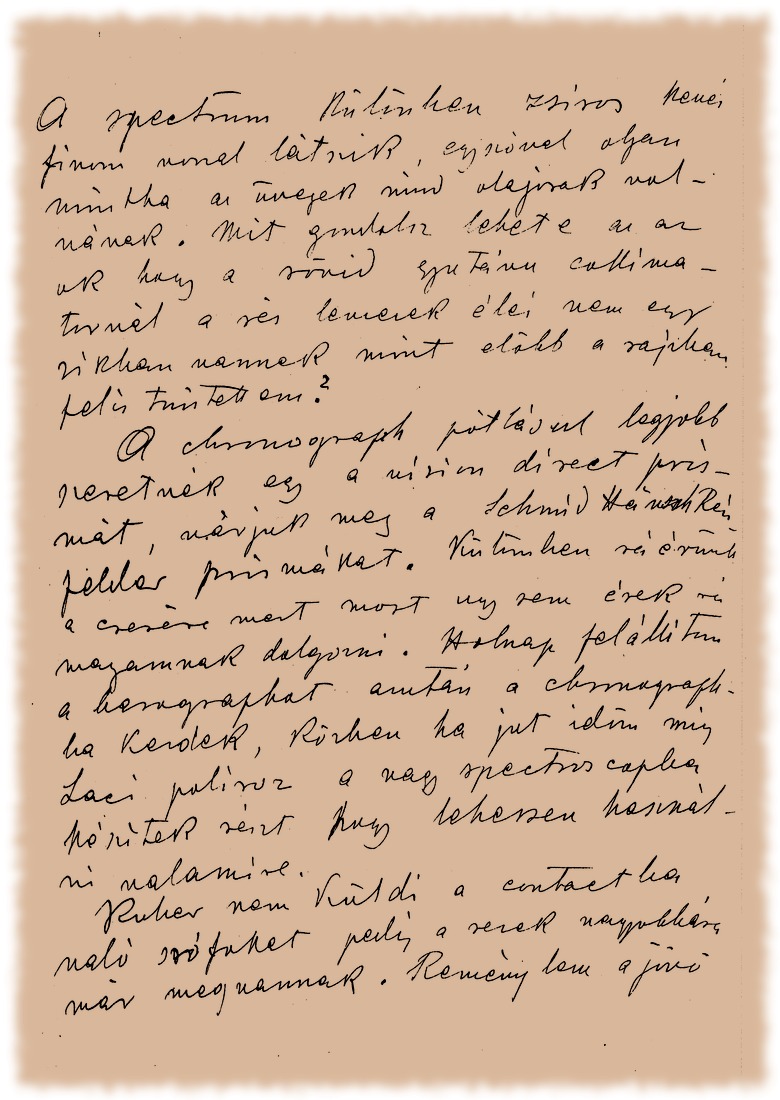 A spectrum Különben zsiros kevés
finom vonal látszik, egyszóval olyan
mintha az üvegek mind olajosak vol-
nának. Mit gondolsz lehet e az az
ok hogy a rövid gyutávu collima-
tornál a rés lemezek élei nem egy
sikban vannak mint előbb a rajzban
fel is tüntettem?
A chronograph pótlásul legjobb
szeretnék egy a vision direct pris-
mát, várjuk meg a Schmid Hänsch
féle prismákat. Különben ráérünk
a cserére mert most ugy sem érek rá
magamnak dolgozni. Holnap felállitom
a barographot azután a chronograph-
ba Kezdek, Közben ha jut időm mig
Laci políroz a nagy spectroscopba
készitek rést hogy lehessen használ-
ni valamire.
Ruber nem Küldi a contactba
való szófákat pedig a rezek nagyobbára
már megvannak. Reménylem a jövő